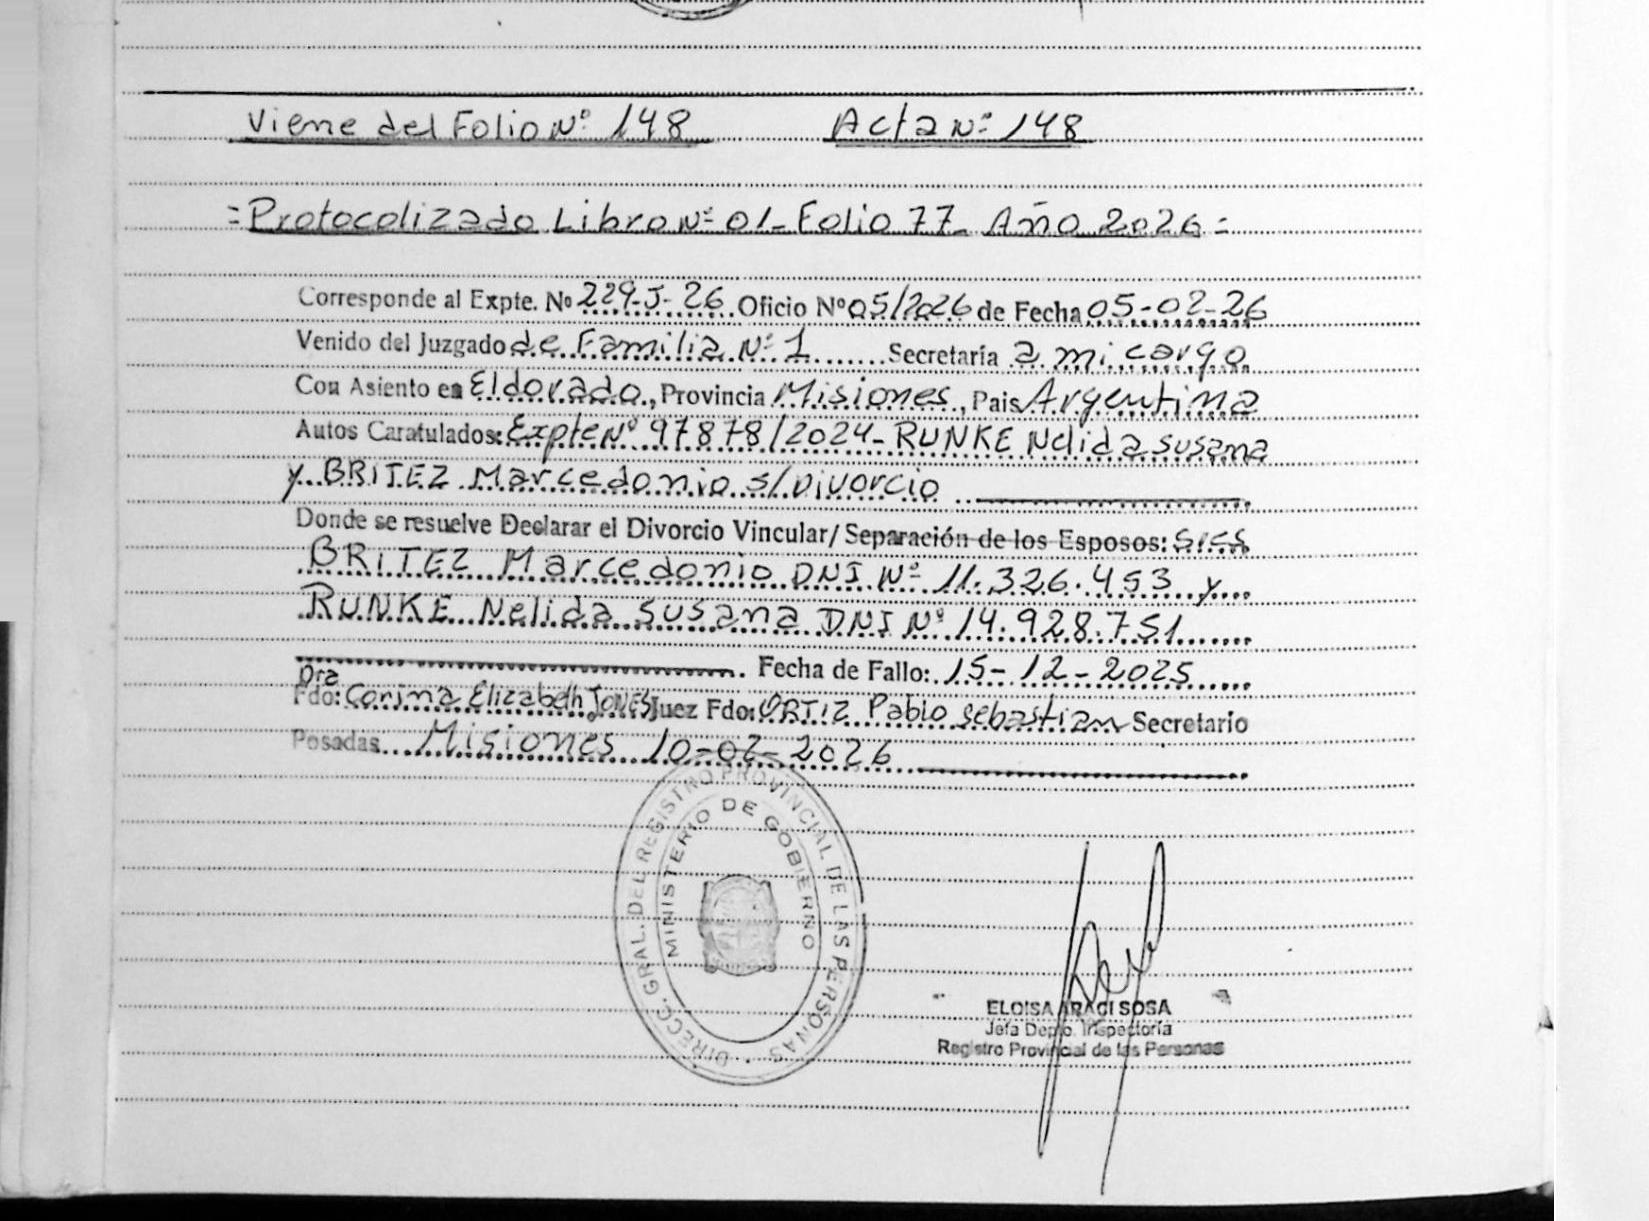 Viene del Folio Nº 148 Acta Nº 148
=Protocolizado Libro Nº 01- Folio 77- Año 2026=
Corresponde al Expte. Nº 229-J-26 Oficio Nº 05/2026 de Fecha 05-02-26
Venido del Juzgado de Familia Nº 1 Secretaría a mi cargo
Con Asiento en Eldorado, Provincia Misiones, Pais Argentina
Autos Caratulados: Expte Nº 97878/2024- RUNKE Nelida Susana
y BRITEZ Marcedonio s/Divorcio
Donde se resuelve Declarar el Divorcio Vincular/ Separación de los Esposos: Sres
BRITEZ Marcedonio DNI Nº 11.326.453 y
RUNKE Nelida Susana DNI Nº 14.928.751
Fecha de Fallo: 15-12-2025
Dra
Fdo: Corina Elizabeth JONES Juez Fdo: ORTIZ Pablo Sebastian Secretario
Posadas Misiones 10-02-2026
DIRECC. GRAL. DEL REGISTRO PROVINCIAL DE LAS PERSONAS
MINISTERIO DE GOBIERNO
ELOISA ARACI SOSA
Jefa Depto. Inspectoría
Registro Provincial de las Personas